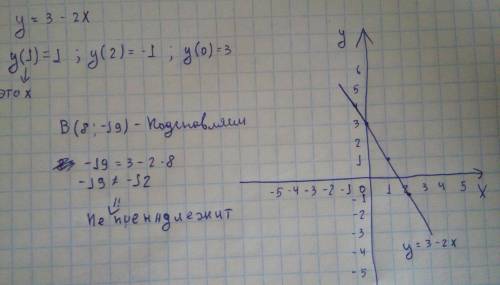 y = 3 - 2x
y(1) = 1 ; y(2) = -1 ; y(0) = 3
это x
B(8; -19) - Подставляем
-19 = 3 - 2 · 8
-19 ≠ -12
Не принадлежит
y
6
5
4
3
2
1
-5 -4 -3 -2 -1 0 1 2 3 4 5 x
-1
-2
-3
-4
-5
y = 3 - 2x